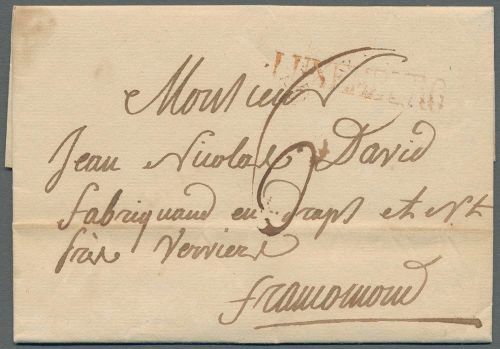 LUXEMBOURG
Monsieur
Jean Nicolas David
fabriquand en draps et st
frès Verviers
framomond